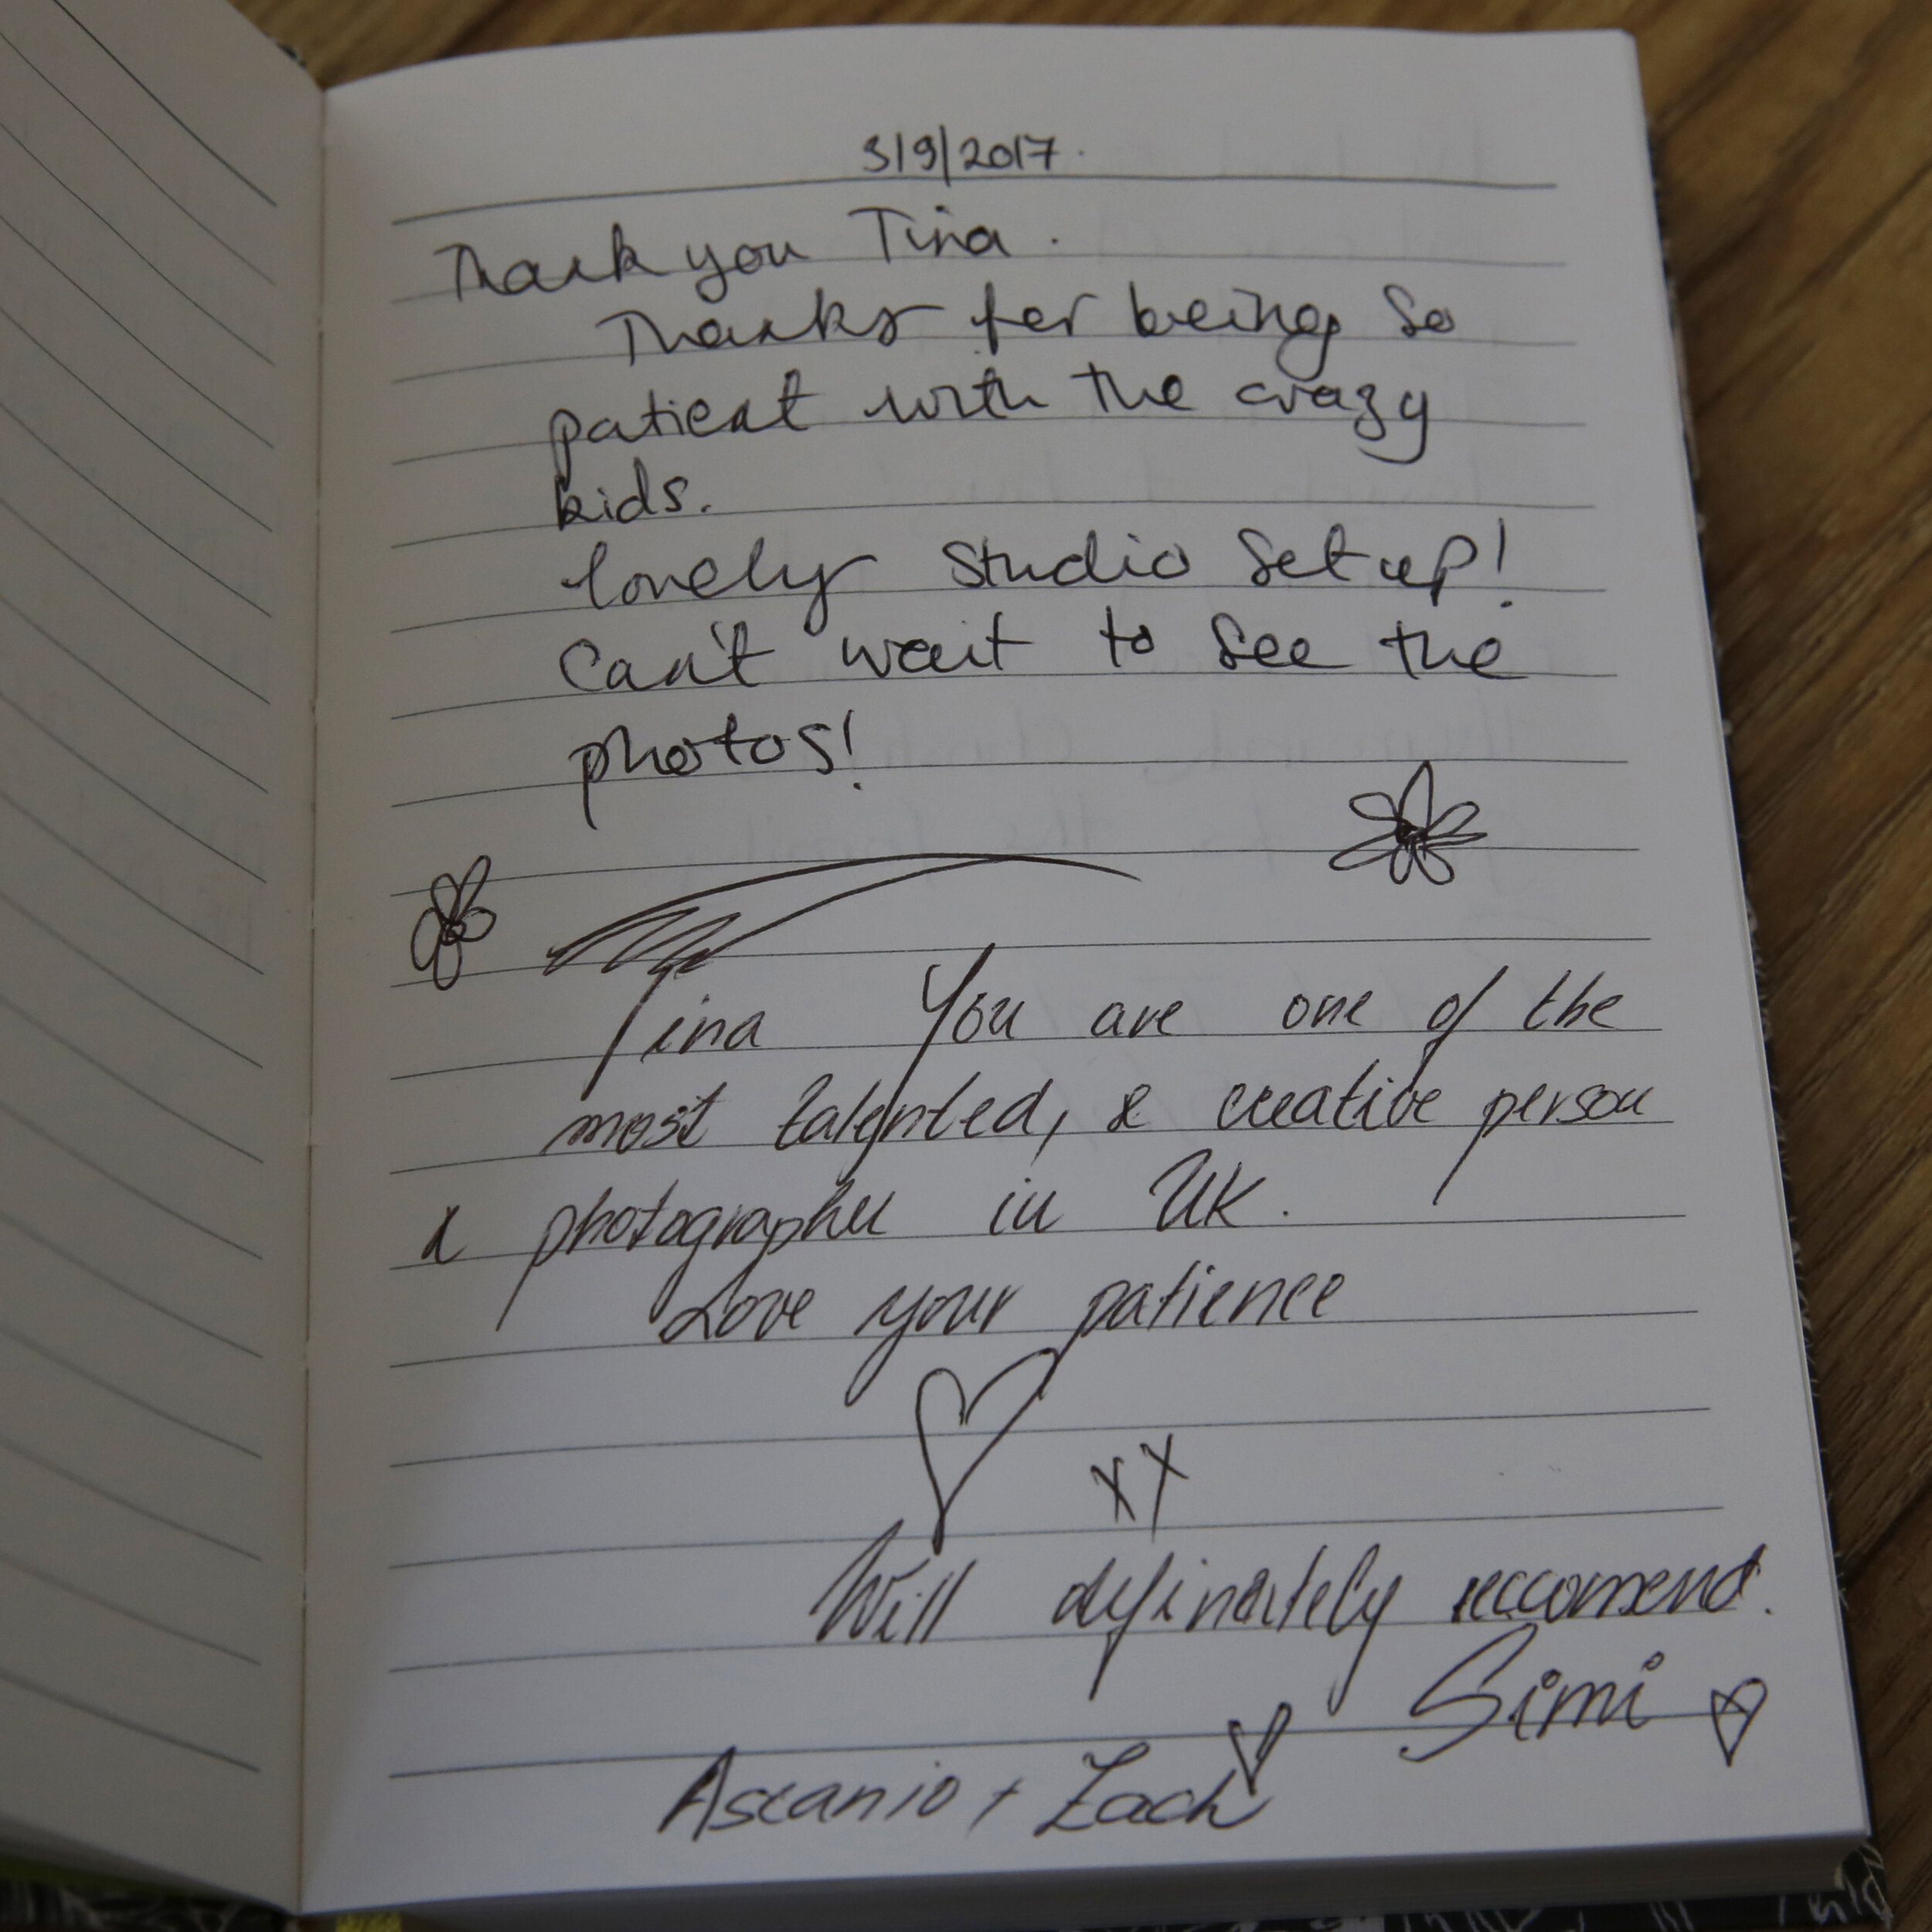 3/9/2017.
Thank you Tina.
Thanks for being so
patient with the crazy
kids.
lovely Studio Set up!
Can't wait to see the
photos!
Tina You are one of the
most talented, & creative person
& photographer in UK.
Love your patience
xx
Will definately reccomend.
Simi
Ascanio + Zach